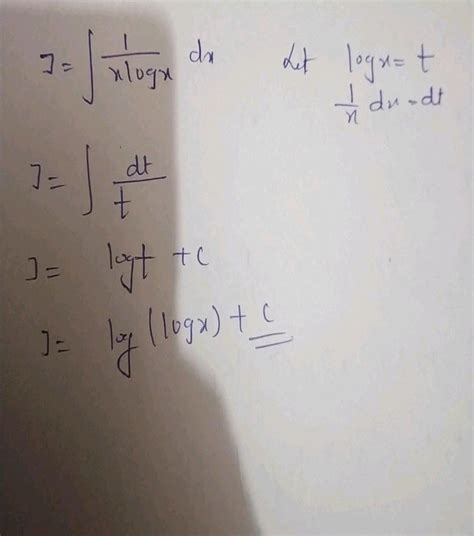 I = ∫ 1/(x logx) dx   Let logx = t
1/x dx = dt
I = ∫ dt/t
I = logt + c
I = log (logx) + c